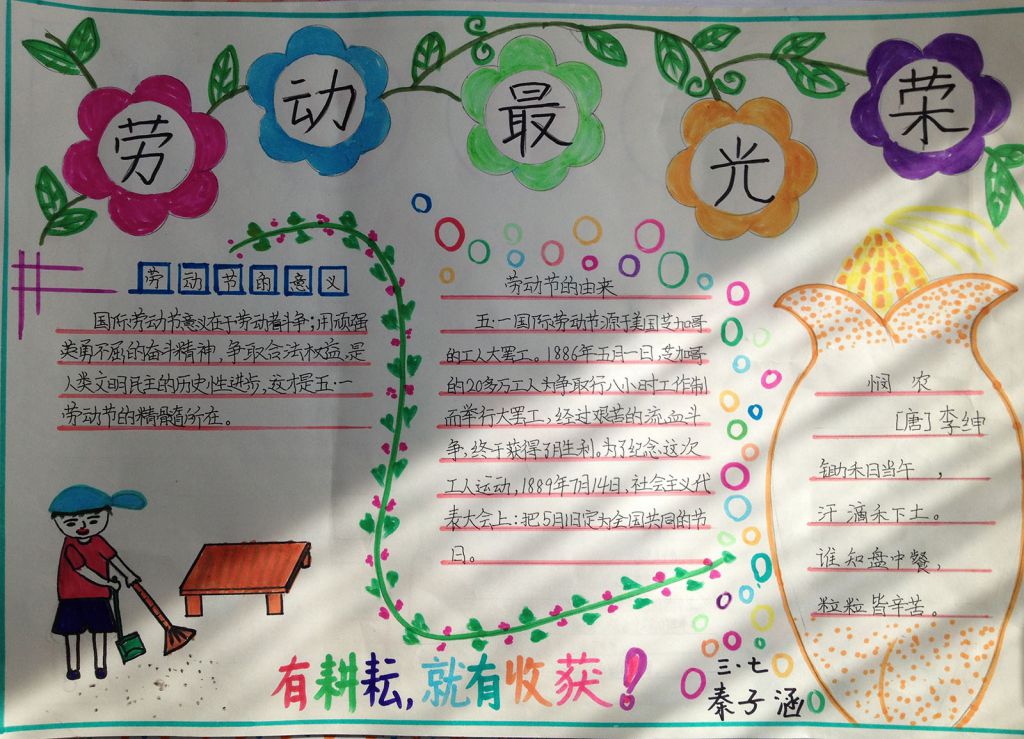 劳动最光荣
劳动节的意义
国际劳动节意义在于劳动者斗争;用顽强
类勇不屈的奋斗精神,争取合法权益,是
人类文明民主的历史性进步,这才是五·一
劳动节的精髓所在。
劳动节的由来
五·一国际劳动节源于美国芝加哥
的工人大罢工。1886年五月一日,芝加哥
的20多万工人为争取行八小时工作制
而举行大罢工,经过艰苦的流血斗
争,终于获得了胜利。为了纪念这次
工人运动,1889年7月14日,社会主义代
表大会上:把5月1日定为全国共同的节
日。
悯农
[唐]李绅
锄禾日当午,
汗滴禾下土。
谁知盘中餐,
粒粒皆辛苦。
有耕耘,就有收获!
三·七
秦子涵